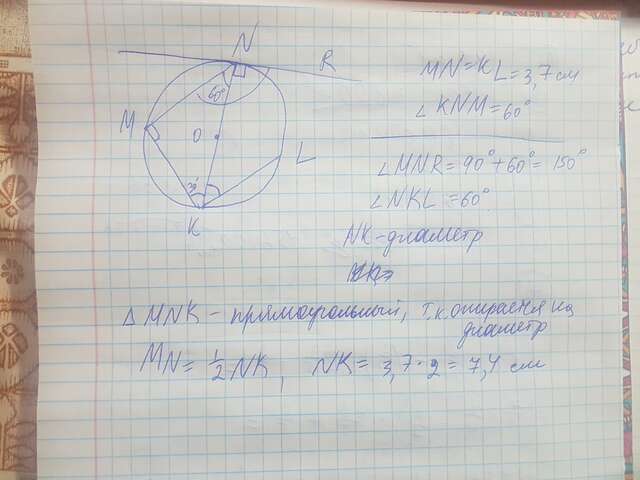 N
R
60°
M
O
L
K
MN=KL=3,7 см
∠KNM=60°
∠MNR=90°+60°=150°
∠NKL=60°
NK-диаметр
△MNK - прямоугольный, т.к опирается на
диаметр
MN=1/2NK, NK=3,7·2=7,4 см